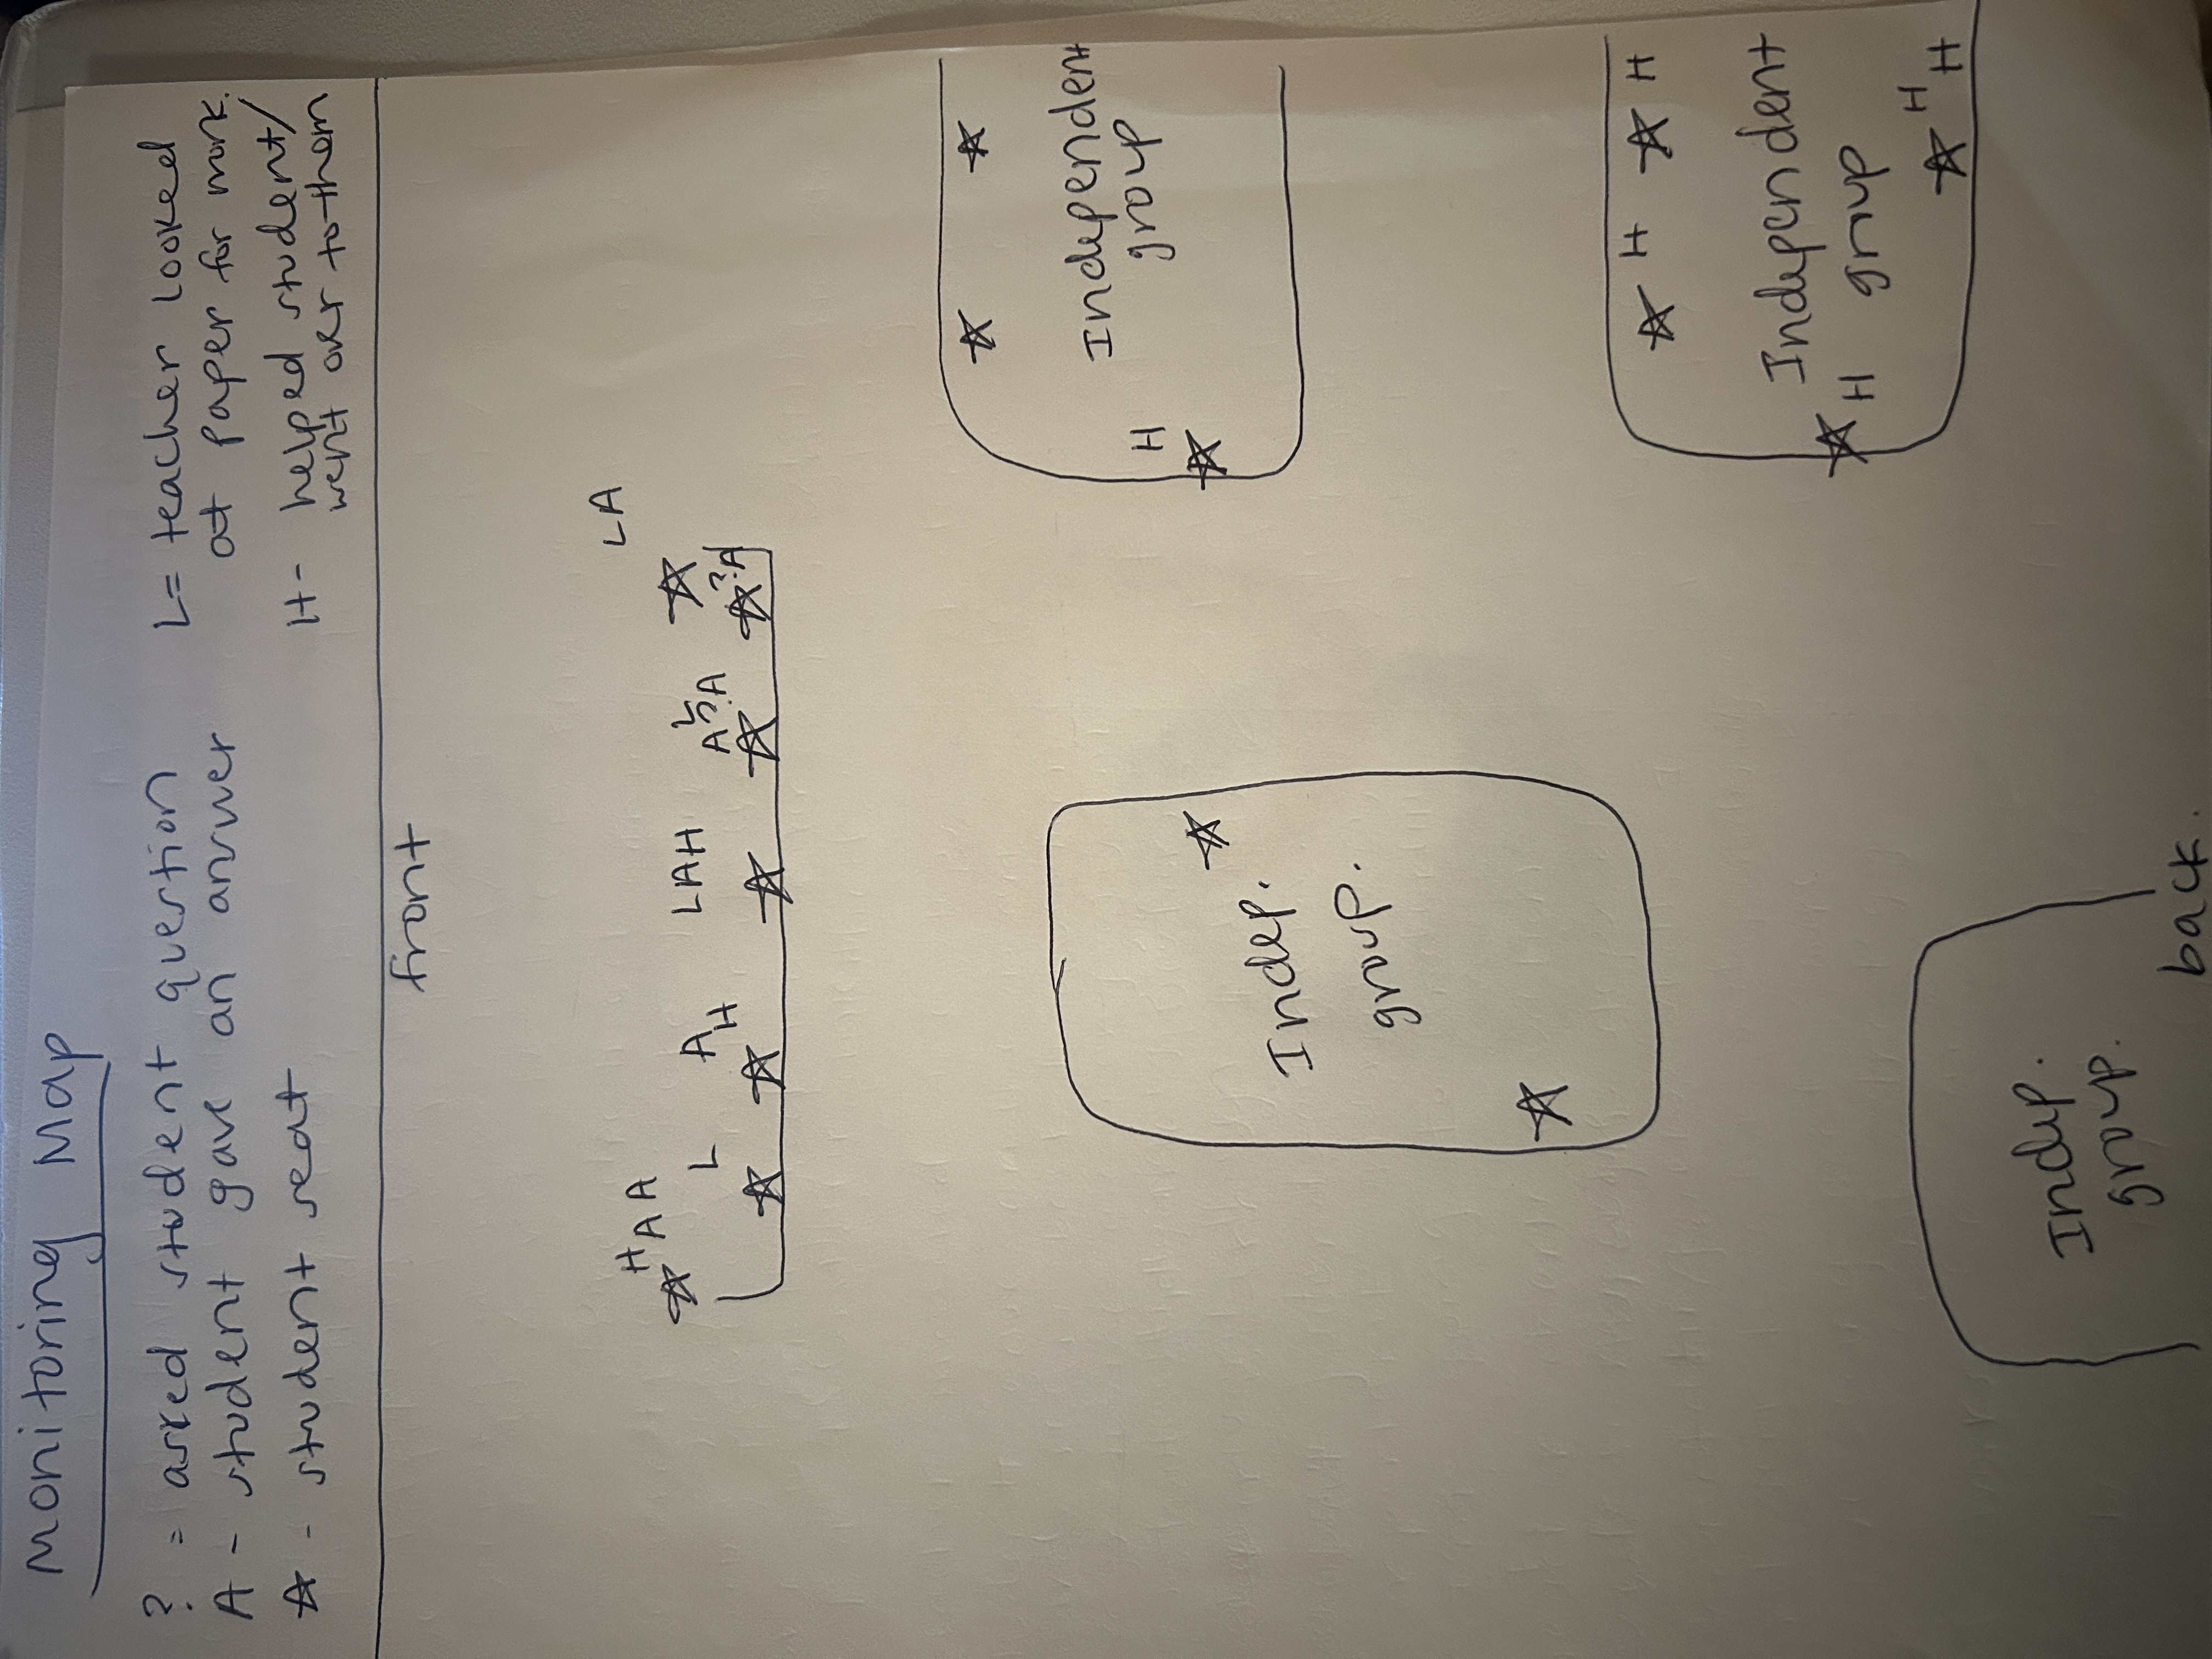 Monitoring Map
? = asked student question
A - student gave an answer
☆ - student seat
L= teacher looked
at paper for work.
H- helped student/
went over to them
front
LA
H A A
L
A H
LAH
L
A ? A
? A
Independent
group
H
Indep.
group.
H H
Independent
group
H
H H
Indep.
group.
back.